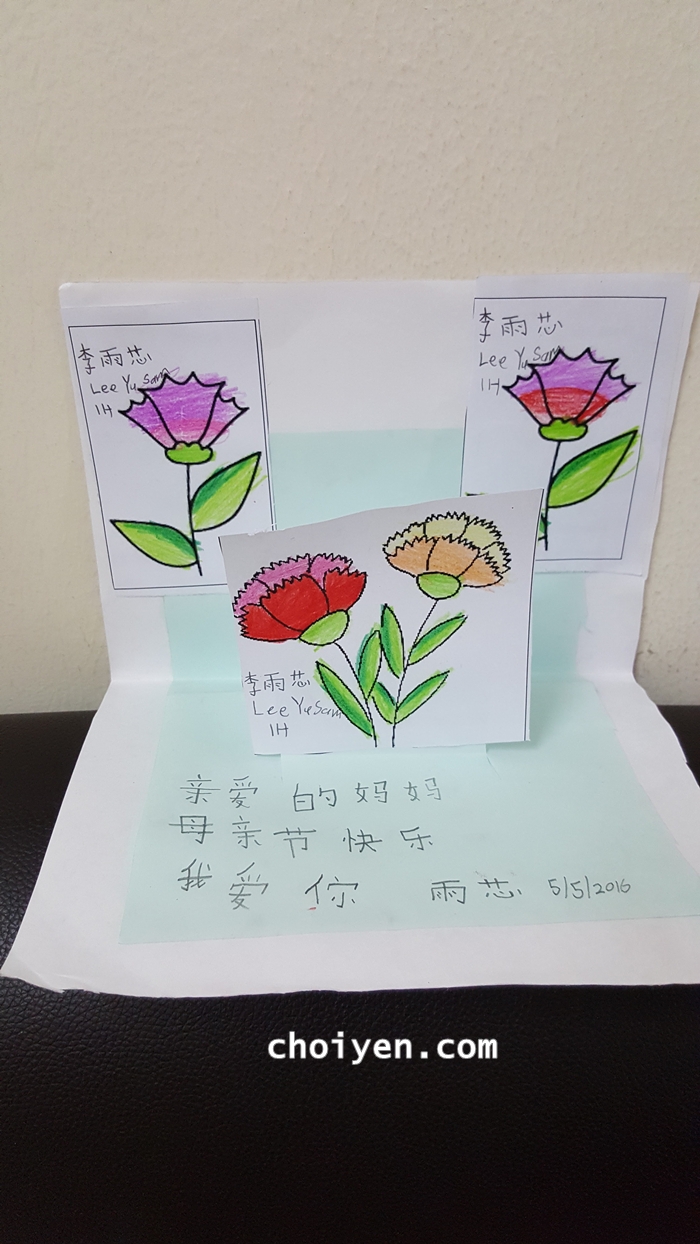 李雨芯
Lee Yu Sam
1H
李雨芯
Lee Yu Sam
1H
李雨芯
Lee Yu Sam
1H
亲爱的妈妈
母亲节快乐
我爱你 雨芯 5/5/2016
choiyen.com